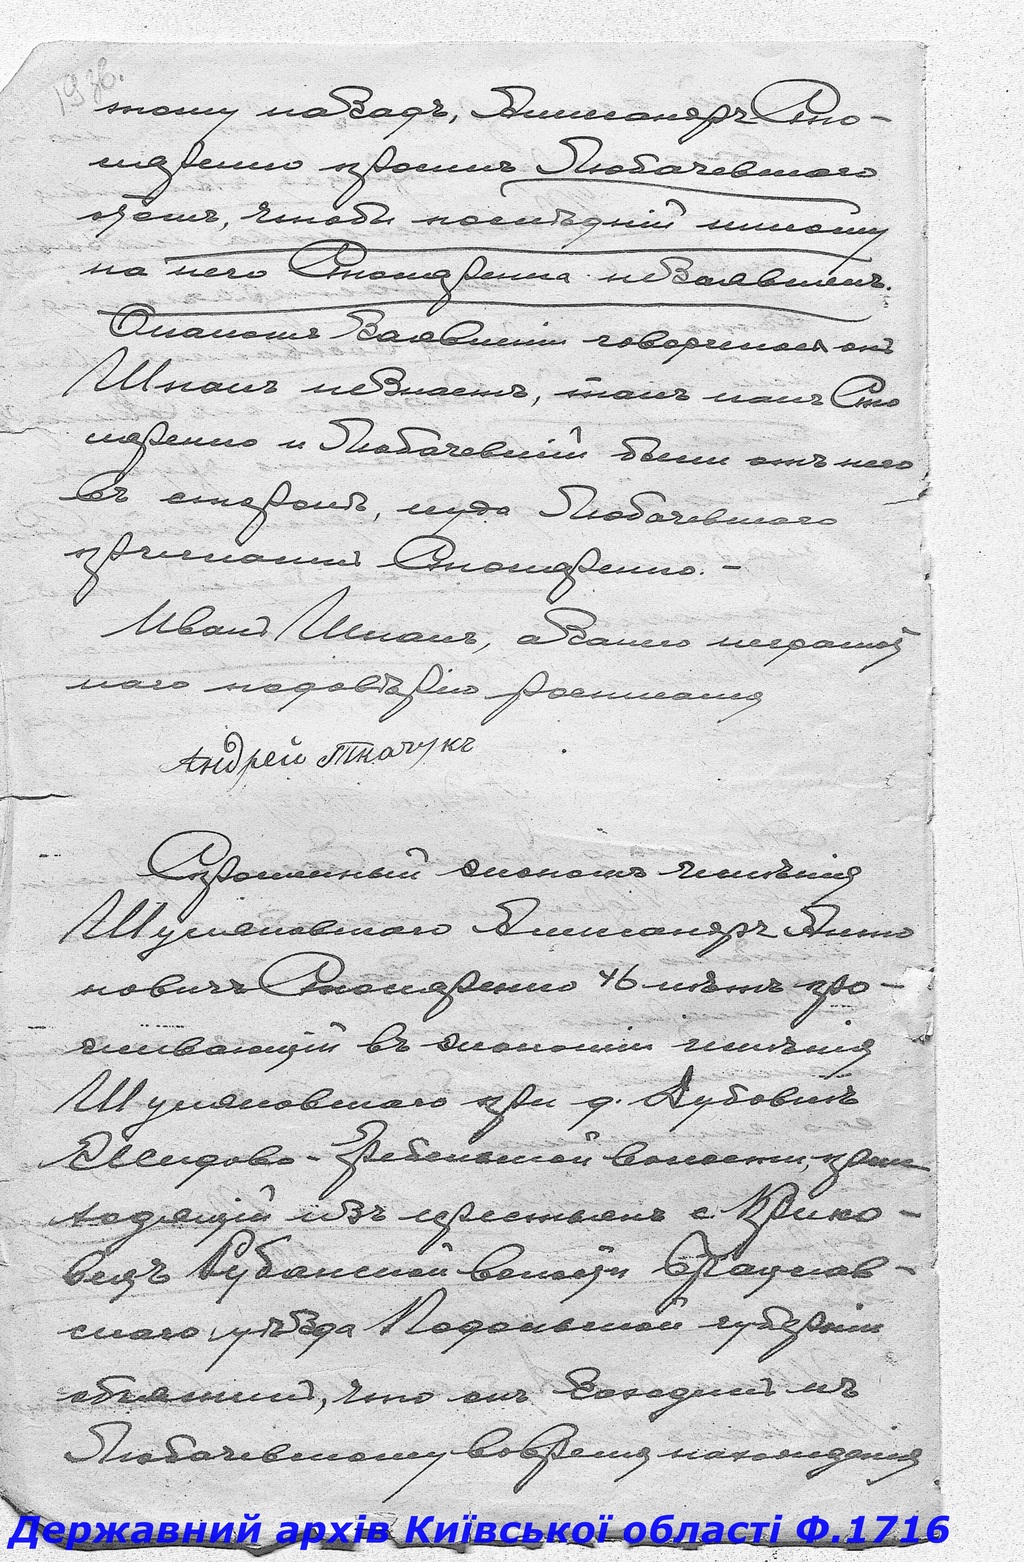 193б.
тому назадъ, Александръ Сто-
ляренко просилъ Любачевскаго
объ томъ, чтобы последній никому
на него Столяренка не заявлялъ.
О какомъ заявленіи говорилося онъ
Шпакъ не знаетъ, такъ какъ Сто
ляренко и Любачевскій были отъ него
въ сторонѣ, куда Любачевскаго
пригласилъ Столяренко. –
Иванъ Шпакъ, а за него неграмот
наго по довѣрію росписался
Андрей Ткачукъ
Спрошенный экономъ имѣнія
Шуляковскаго Александръ Анто
новичъ Столяренко 46 лѣтъ про-
живающій въ экономіи имѣнія
Шуляковскаго при д. Дубовикъ
Гребенской волости, проис
ходящій изъ крестьянъ с. Крико-
вецъ волости Брацлав-
скаго уѣзда Подольской губерніи
объяснилъ, что онъ заходилъ къ
Любачевскому во время нахожденія
Державний архів Київської області Ф.1716